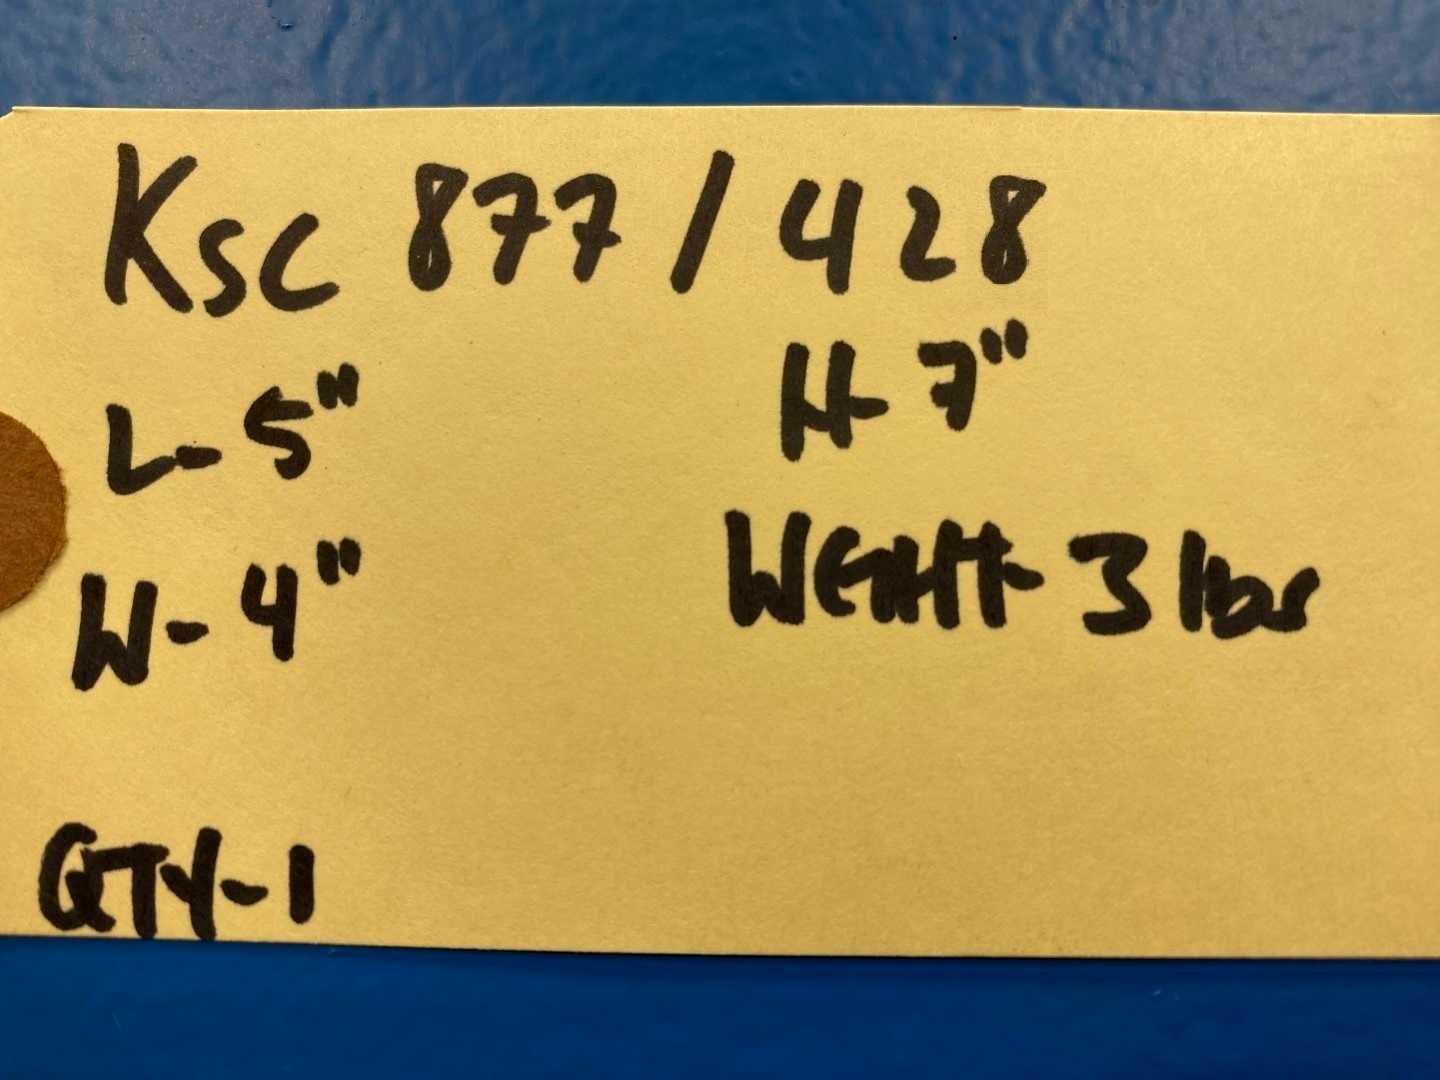 Ksc 877 / 428
L- 5" H- 7"
W- 4" WEIHT- 3 lbs
QTY-1